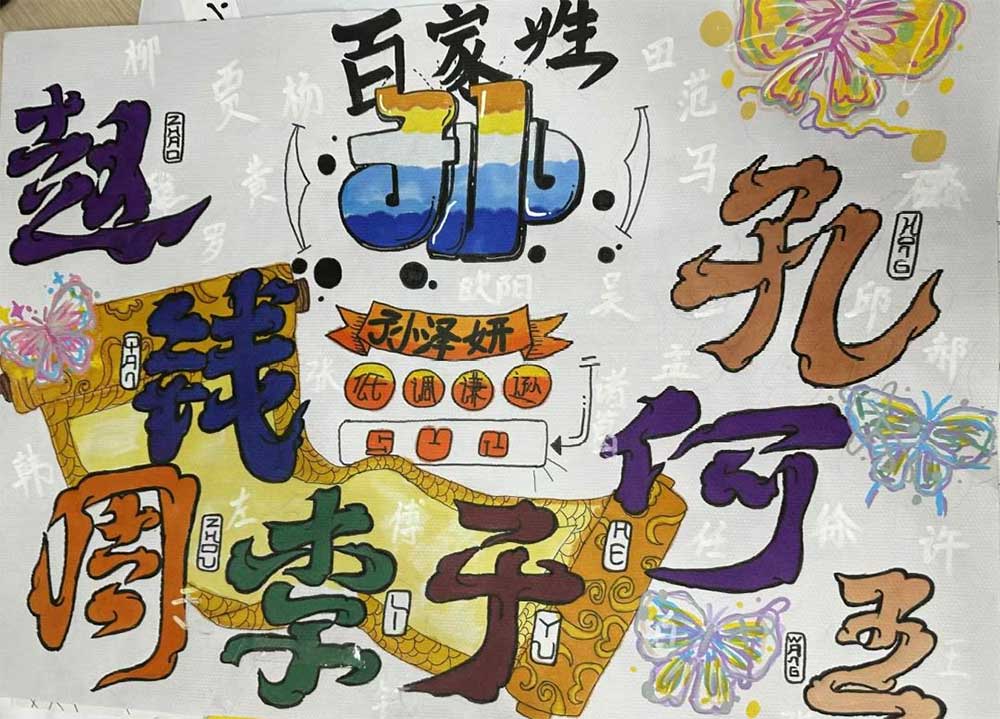 百家姓
柳
贾
杨
田
范
赵
ZHAO
孙
马
黄
罗
孔
欧阳
吴
邱
钱
孙泽妍
孟
郝
张
低调谦逊
诸葛
SUN
韩
何
周
ZHOU
左
李
LI
傅
于
YU
HE
任
徐
许
王
WANG